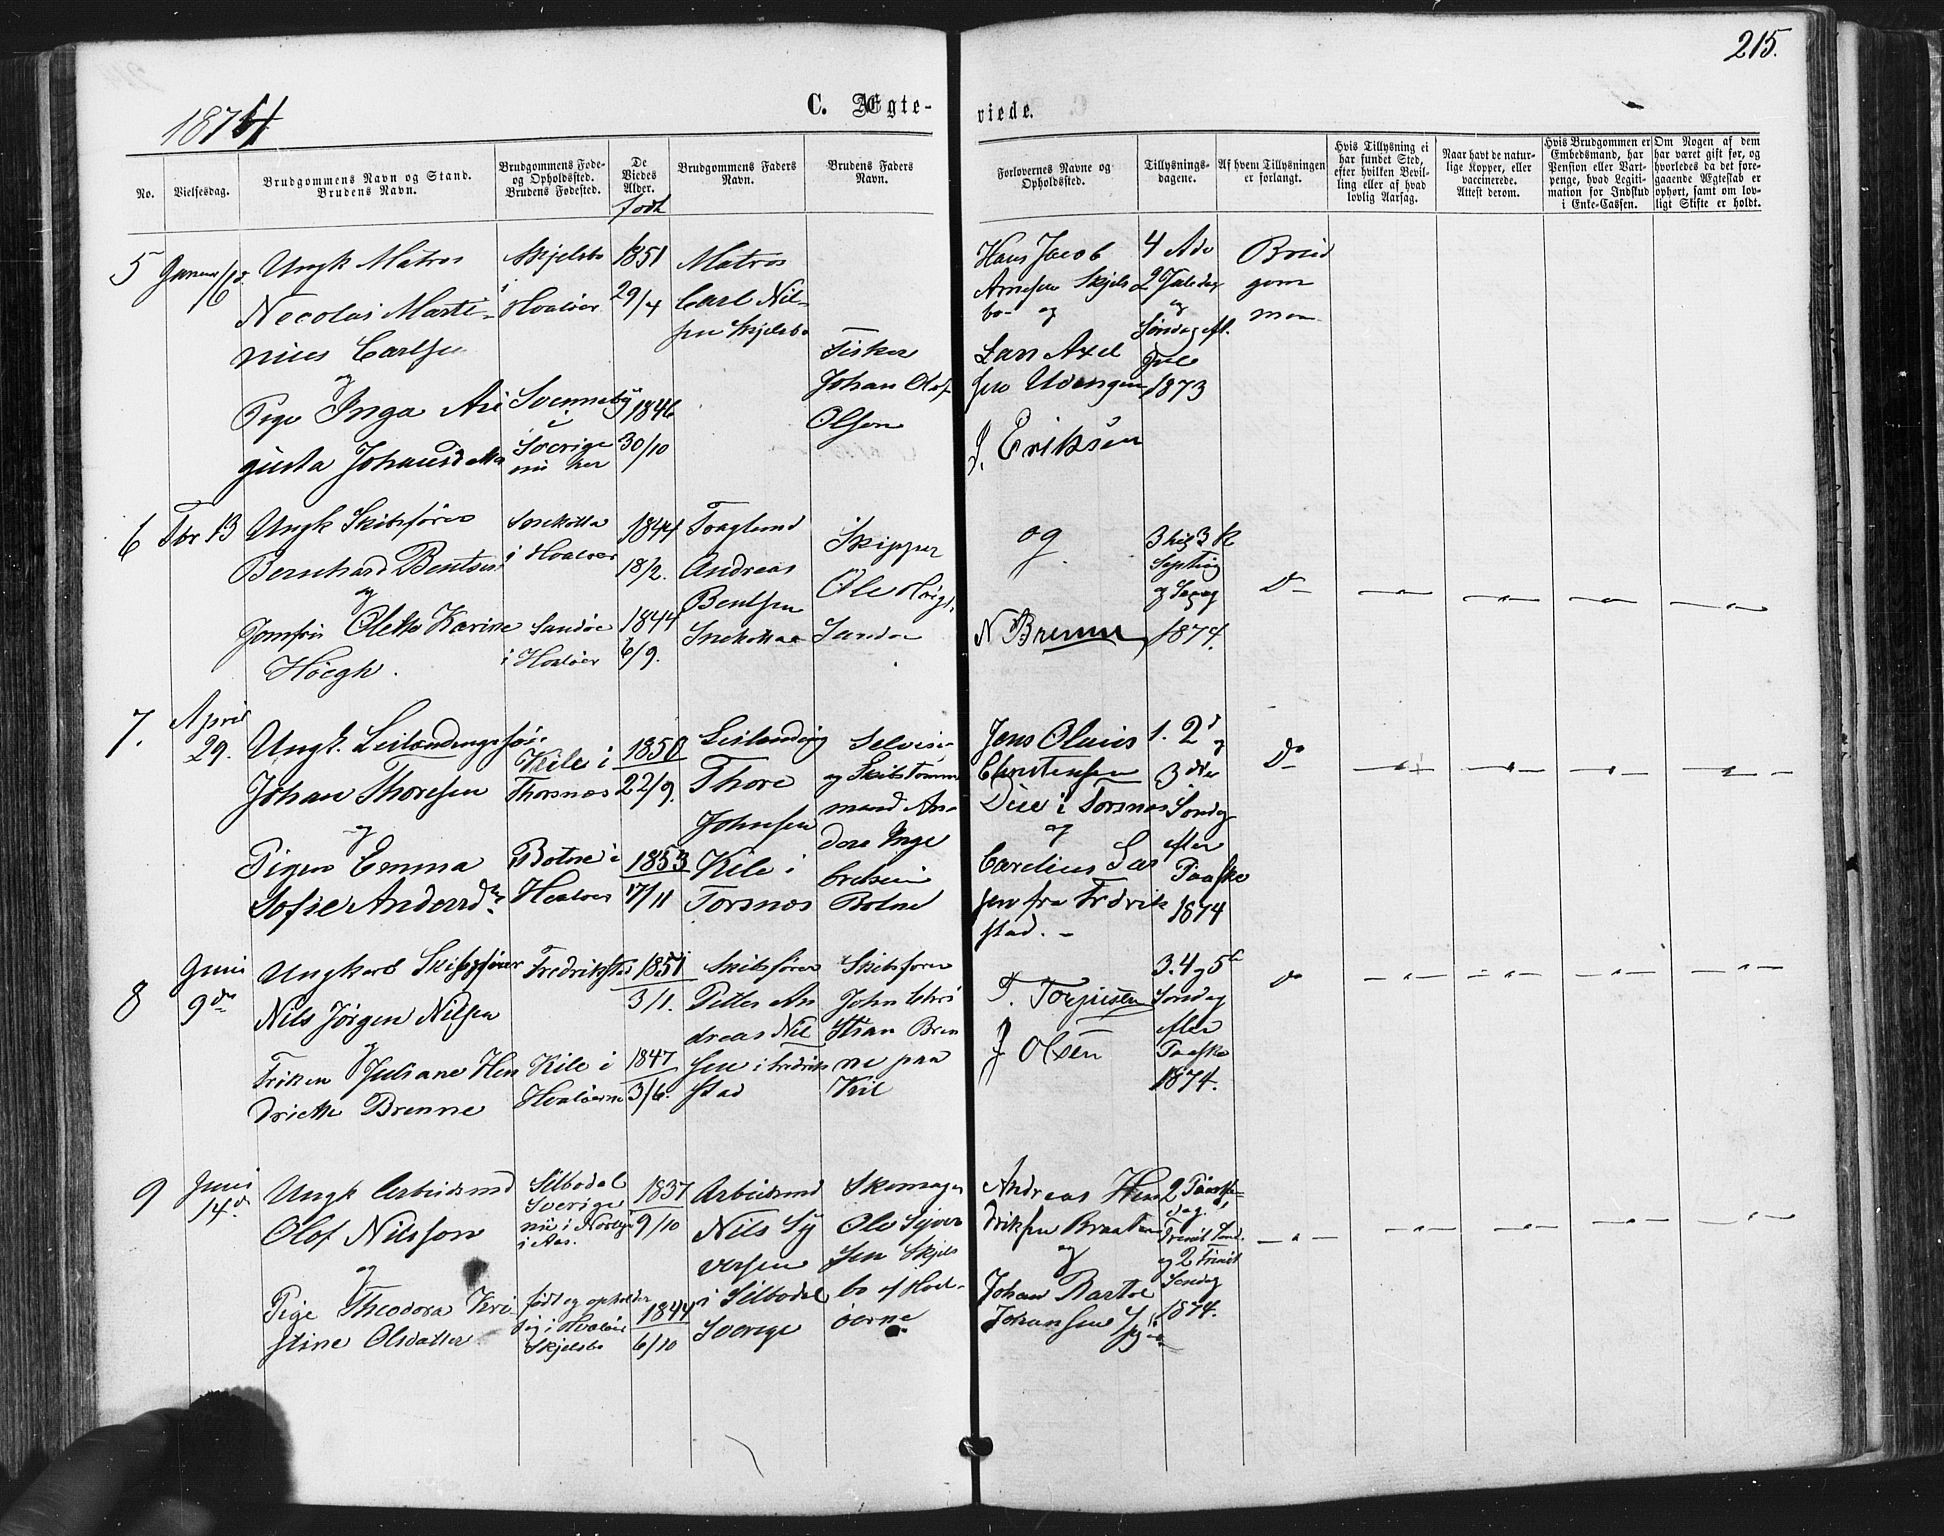 215.
1874
C. Ægte-
viede.
No.
Vielsesdag.
Brudgommens Navn og Stand.
Brudens Navn.
Brudgommens Føde-
og Opholdssted.
Brudens Fødested.
De
Viedes
Alder.
født
Brudgommens Faders
Navn.
Brudens Faders
Navn.
Forlovernes Navne og
Opholdssted.
Tillysnings-
dagene.
Af hvem Tillysningen
er forlangt.
Hvis Tillysning ei
har fundet Sted,
efter hvilken Bevil-
ling eller af hvad
lovlig Aarsag.
Naar havt de natur-
lige Kopper, eller
vaccinerede.
Attest derom.
Hvis Brudgommen er
Embedsmand, har
Pension eller Vart-
penge, hvad Legiti-
mation for Indskud
i Enke-Cassen.
Om Nogen af dem
har været gift før, og
hvorledes da det fore-
gaaende Ægteskab er
ophørt, samt om lov-
ligt Skifte er holdt.
5
6
Ungk Matros
Necolai Marti-
nius Carlsen
og
Pige Inga Au
gusta Johansd
Skjelsbo
i
Hvaløer
Svenneby
i
Sverige
nu her
1851
29/4
1846
30/10
Matros
Carl Nil-
sen Skjelsbo
Fisker
Johan Olof
Olsen
Hans Jacob
Arnesen Skjels
bo og
Lars Axel
sen Udengen
J. Eriksen
4 Adv
2 Juledag
og
Søndag efl.
Jul
1873
Brud
gom
men
6
Fbr 13
Ungk Skibsfører
Bernhard Bentsen
og
Jomfru Olette Karine
Høegh.
i Hvaløer
Sandøe
i Hvaløer
1844
18/2.
1844
6/9.
Andreas
Bentsen
Skipper
Ole Høigh
Sandøe
og
N Brenne
3 hel 3 K
og
1874.
Do
7.
April
29.
Ungk. Leilændingssøn
Johan Thoresen
og
Pigen Emma
Sofie Andersdtr.
Kile i
Thorsnæs
Botne i
Hvaløer
1850
22/9.
1853
17/11
Leilænding
Thore
Johnsen
Kile i
Torsnæs
Selveier
og Skibstømmer
mand An-
ders Inge
bretsen
Botne
Jens Olaus
Christensen
i Torsnæs
og
Carelius Lar
sen fra Fredrik
stad. -
1. 2d
og
3die
Søndag
efter
Paaske
1874
Do
8
Juni
9de
Ungkarl Skibsfører
Nils Jørgen Nilsen
og
Frøken Juliane Hen
driette Brenne
Fredrikstad
Kile i
Hvaløerne
1851
3/1.
1847
3/6.
Skibsfører
Petter An
dreas Nil
sen i Fredrik
stad
Skibsfører
John Chri
stian Bren
ne paa
Kiil
T. Torjusen
J Olsen
3. 4 og 5te
Søndag
efter
Paaske
1874.
do
9
Juni
14de
Ungk Arbeidsmd
Olof Nilsson
og
Pige Theodora Kri
stine Olsdatter
Silbodal
Sverige
nu i Norge
i Aas.
født og opholder
sig i Hvaløer
Skjelsbo
1837
9/10
1844
6/10
Arbeidsmd
Nils Sy
versen
i Silbodal
Sverige
Skomager
Ole Syver
sen Skjels
bo af Hval-
øerne
Andreas Hen
driksen Braaten
og
Johan Bastoe
Johansen
2 Paaske-
dag.
Trinit Sønd.
og 2 Trinit
Søndag
1874.